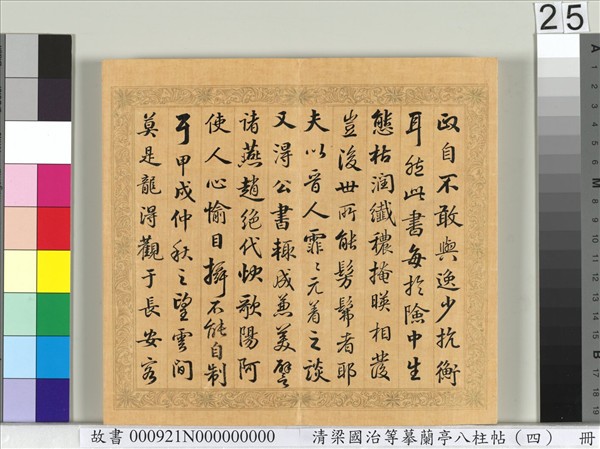 25
政自不敢與逸少抗衡
耳然此書每於險中生
態枯潤纖穠掩映相發
豈後世所能髣髴者耶
夫以晉人霏〻元著之談
又得公書輒成兼美譬
諸燕趙絕代快歌陽阿
使人心愉目不能自制
耳甲戌仲秋之望雲間
莫是龍得觀于長安客
故書 000921N000000000 清梁國治等摹蘭亭八柱帖（四） 冊